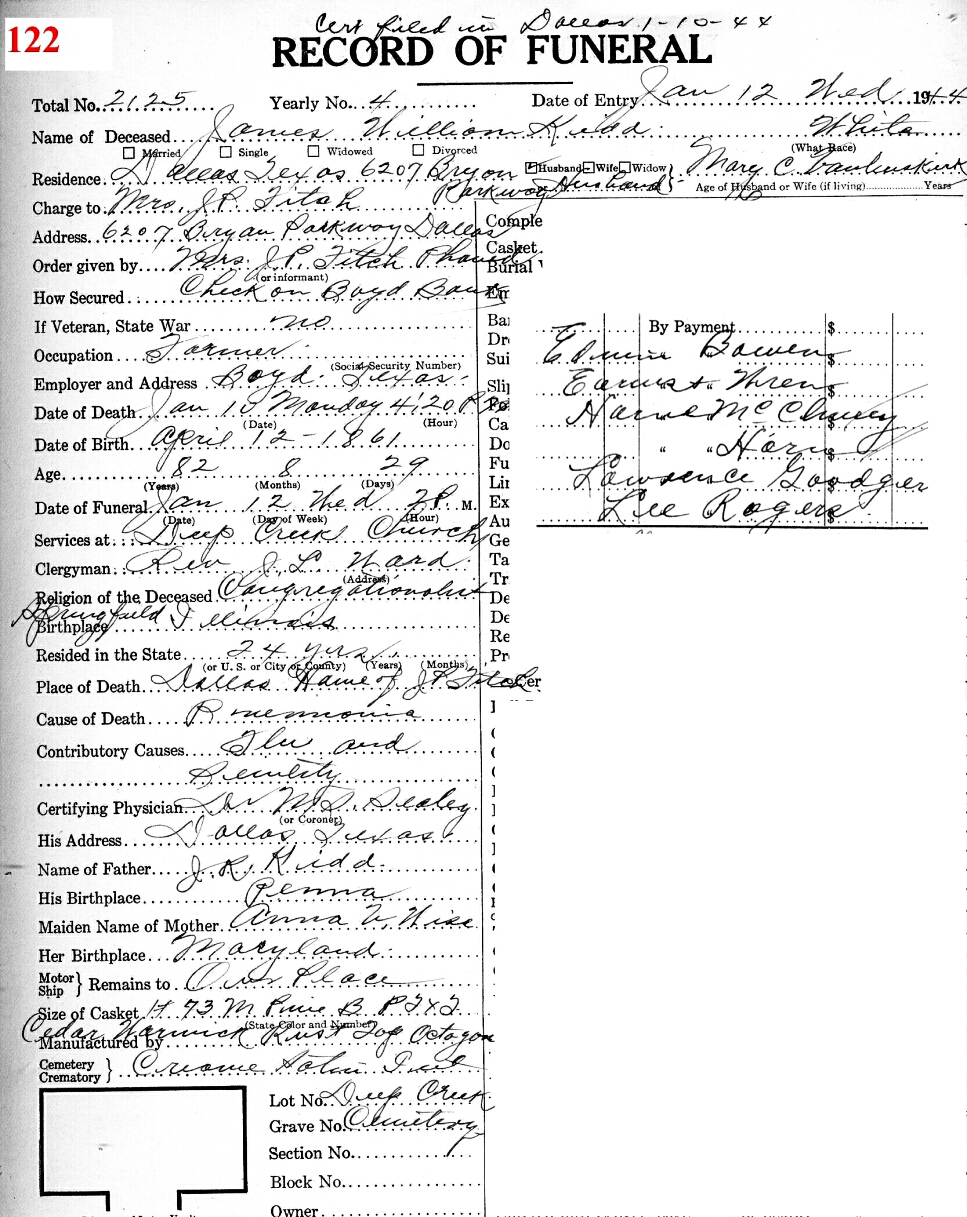 Cert filed in Dallas 1-10-44
122
RECORD OF FUNERAL
Total No. 2125 Yearly No. 4 Date of Entry Jan 12 Wed 1944
Name of Deceased James William Kidd White
Married Single Widowed Divorced (What Race)
Residence Dallas Texas 6207 Bryan Parkway Husband Wife Widow Husband Mary C.
Age of Husband or Wife (if living) Years
Charge to Mrs. J.P. Fitch
Address 6207 Bryan Parkway Dallas
Order given by Mrs. J.P. Fitch Phoned
(or informant)
How Secured Check on Boyd Bank
If Veteran, State War no
Occupation Farmer
(Social Security Number)
Employer and Address Boyd Texas
Date of Death Jan 10 Monday 4;20 P
(Date) (Hour)
Date of Birth April 12-1861
Age 82 8 29
(Years) (Months) (Days)
Date of Funeral Jan 12 Wed 2 P. M.
(Date) (Day of Week) (Hour)
Services at Deep Creek Church
Clergyman Rev J. L. Ward
(Address)
Religion of the Deceased Congregationalist
Birthplace Springfield Illinois
Resided in the State 24 yrs
(or U. S. or City or County) (Years) (Months)
Place of Death Dallas Home of J.P. Fitch
Cause of Death Pnemnonia
Contributory Causes Flu and
Senility
Certifying Physician Dr M.S. Sealey
(or Coroner)
His Address Dallas Texas
Name of Father J. R. Kidd
His Birthplace Penna
Maiden Name of Mother Anna V. Wise
Her Birthplace Maryland
Motor Ship } Remains to Our Place
Size of Casket 73 M Pine B. P 2X2
(State Color and Number)
Manufactured by Cedar Warwick Top Octagon
Cemetery Crematory } Creome Satin
Lot No. Deep Creek
Grave No. Cemetery
Section No.
Block No.
Owner
Comple
Casket
Burial
Em
Ba
Dr
Sui
Slip
Ca
Do
Fu
Lin
Ex
Au
Ge
Ta
Tr
De
De
Re
Pr
By Payment $
Edwine Bowen $
Earnest Wren $
Harve McClurey $
" " Horn $
Lawrence Goodger $
Lee Rogers $